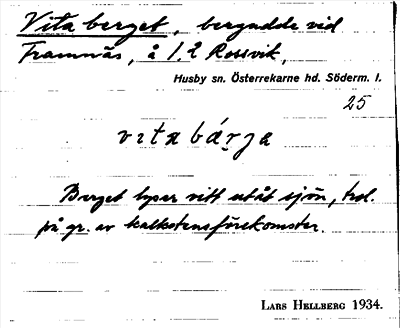 Vita berget, bergudde vid
Framnäs, å 1.2 Rossvik,
Husby sn. Österrekarne hd. Söderm. l.
25
vitabárja
Berget lyser vitt utåt sjön, trol.
på gr. av kalkstensförekomster.
LARS HELLBERG 1934.